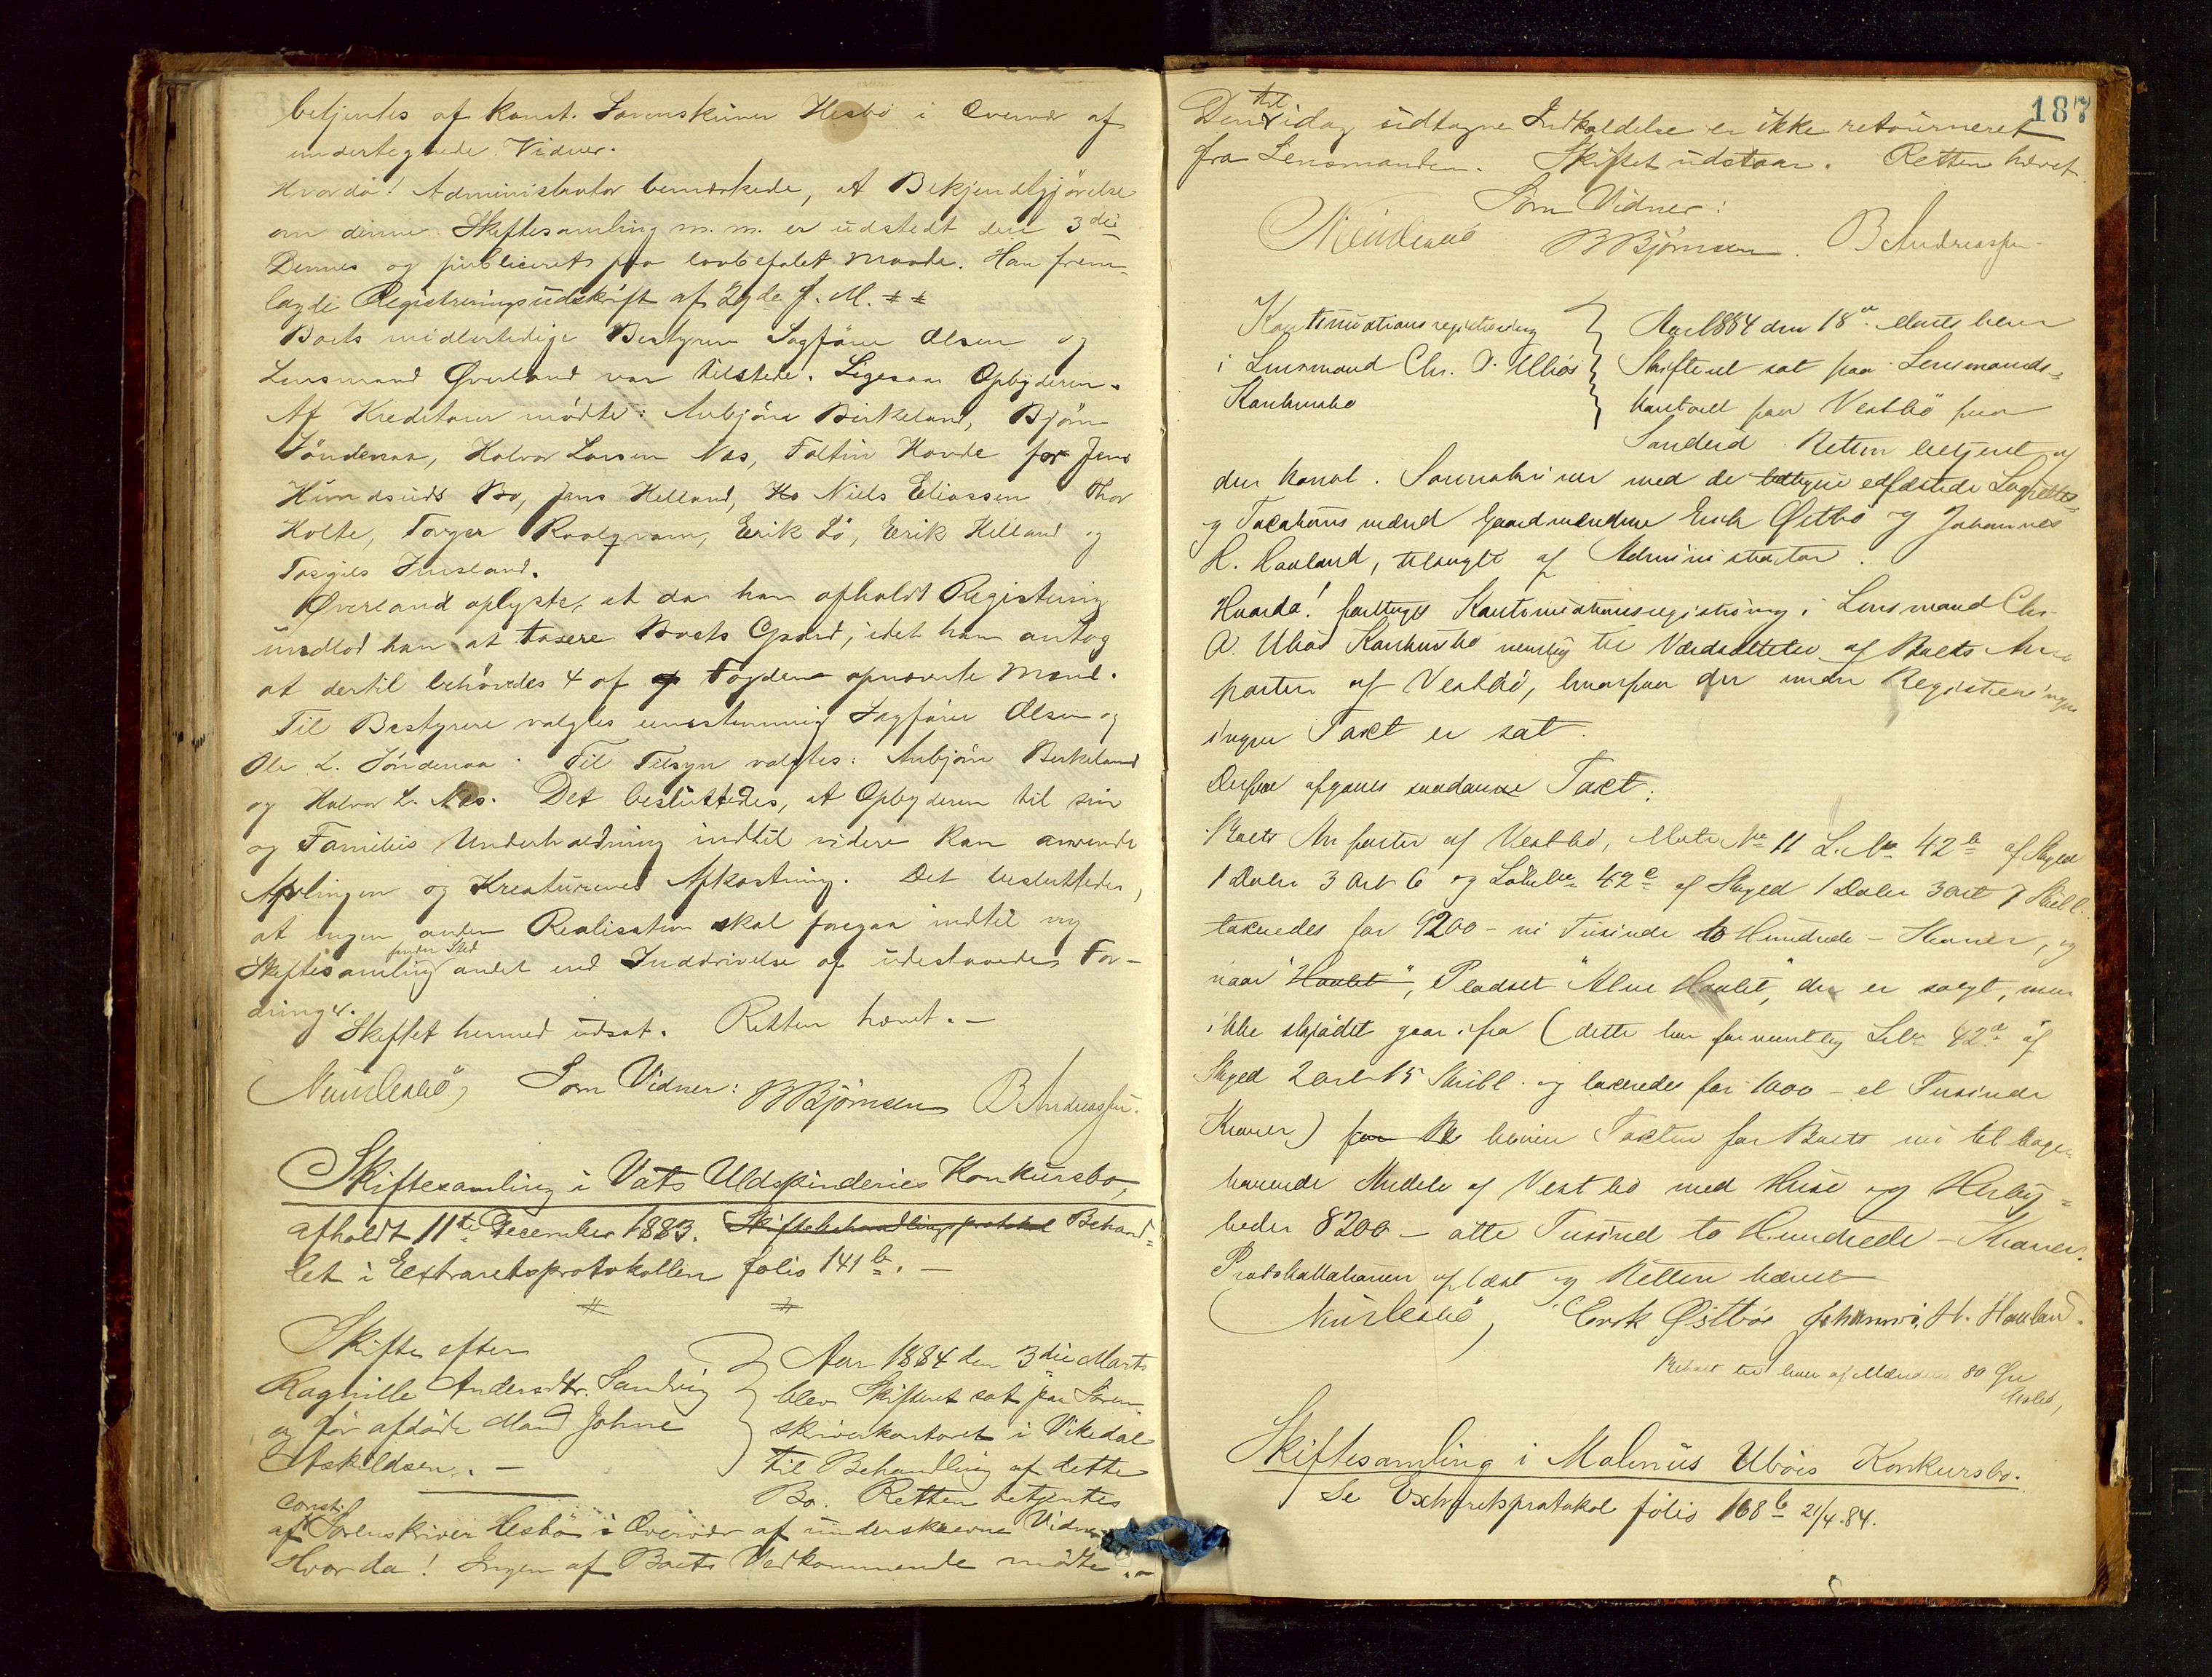 betjentes af konst. Sorenskriver Hesbö i Overvær af
undertegnede Vidner.
Hvorda! Administrator bemærkede, at Bekjendtgjörelse
om denne Skiftesamling m. m. er udstedt den 3die
Dennes og publiceret paa lovbefalet Maade. Han frem-
lagde Registreringsudskrift af 29de f. M. ⌗ ⌗
Boets midlertidige Bestyrer Sagförer Olsen og
Lensmand Øverland var tilstede. Ligesaa Opbyderen.
Af Kreditorer mödte: Anbjörn Birkeland, Björn
Söndenaa, Halvor Larsen Næs, Faltin Hovde for Jens
Bo, Jens Helland, Ho Niels Eliassen, Thor
Holte, Torger Raalqvam, Eerik Lö, Eerik Helland og
Torgils
Øverland oplyste, at da han afholdt Registrering
undlod han at taxere Boets Gaard, idet han antog
at dertil behövedes 4 af Fogden opnævnte Mænd.
Til Bestyrere valgtes eenstemmig Sagförer Olsen og
Ole L. Söndenaa. Til Tilsyn valgtes: Anbjörn Birkeland
og Halvor L. Næs. Det besluttedes, at Opbyderen til sin
og Families Underholdning indtil videre kan anvende
Avlingen og Kreaturenes Afkastning. Det besluttedes,
at ingen anden Realisation skal foregaa indtil ny
finder Sted
Skiftesamling andet end Inddrivelse af udestaaende For-
dringer.
Skiftet hermed udsat. Retten hævet. -
Som Vidner: B Björnsen B Andreassen.
Skiftesamling i Vats Uldspinderies Konkursbo,
afholdt 11te December 1883. Skiftebehandlingsprotokol Behand-
let i Extraretsprotokollen folio 141 b. -
⌗ ⌗
Skifte efter
Ragnille Andersdtr. Sandvig
og för afdöde Mand Johne
Askildsen. -
Aar 1884 den 3die Marts
blev Skifteret sat paa Soren-
skriverkontoret i Vikedal
til Behandling af dette
Bo. Retten betjentes
const.
af Sorenskriver Hesbö i Overvær af underskrevne Vidner
Hvorda! Ingen af Boets Vedkommende mödte. -
187
til
Den idag udtagne Indkaldelse er ikke retourneret
fra Lensmanden. Skiftet udstaar. Retten hævet.
Som Vidner:
B Björnsen. B Andreassen
Kontinuationsregistrering
i Lensmand Chr. O. Ulbös
Konkursbo
Aar 1884 den 18de Marts blev
Skifteret sat paa Lensmands-
kontoret paa Vestbö paa
Sandeid. Retten betjent af
den konst. Sorenskriver med de edfæstede Lagrettes-
og Taxationsmænd Gaardmændene Erik Østbö og Johannes
H. Hauland, tilsagte af Administrator.
Hvorda! foretoges Kontinuationsregistrering i Lensmand Chr.
O. Ulbös Konkursbo nemlig til Værdsættelse af Boets An-
parter af Vestbö, hvorpaa der under Registreringen
ingen Taxt er sat.
Derpaa afgaves saadanne Taxt:
Boets Anparter af Vestbö, Matr. No 11 L. No 42 b af Skyld
1 Daler 3 Ort 6 og Löbe No 42 c af Skyld 1 Daler 3 Ort 7 Skill.
taxeredes for 9200 - ni Tusinde to Hundrede - Kroner, og
naar "Haalet", Pladset "Alne Haalet", der er solgt, men
ikke skjödet gaar ifra (dette har forventlig L No 42 d af
Skyld 2 Ort 15 Skill. og taxeredes for 1000 - et Tusinde
Kroner) for Bo bliver Taxten for Boets nu tilbage-
havende Andele af Vestbö med Huse og Herlig-
heder 8200 - otte Tusind to Hundrede - Kroner.
Protokollationen oplæst og Retten hævet
Erik Østbö Johannes H. Hauland.
Betalt til hver af Mændene 80 Öre
Hesbö,
Skiftesamling i Malenus Uböes Konkursbo.
Se Extraretsprotokol folio 168 b 21/4.84.